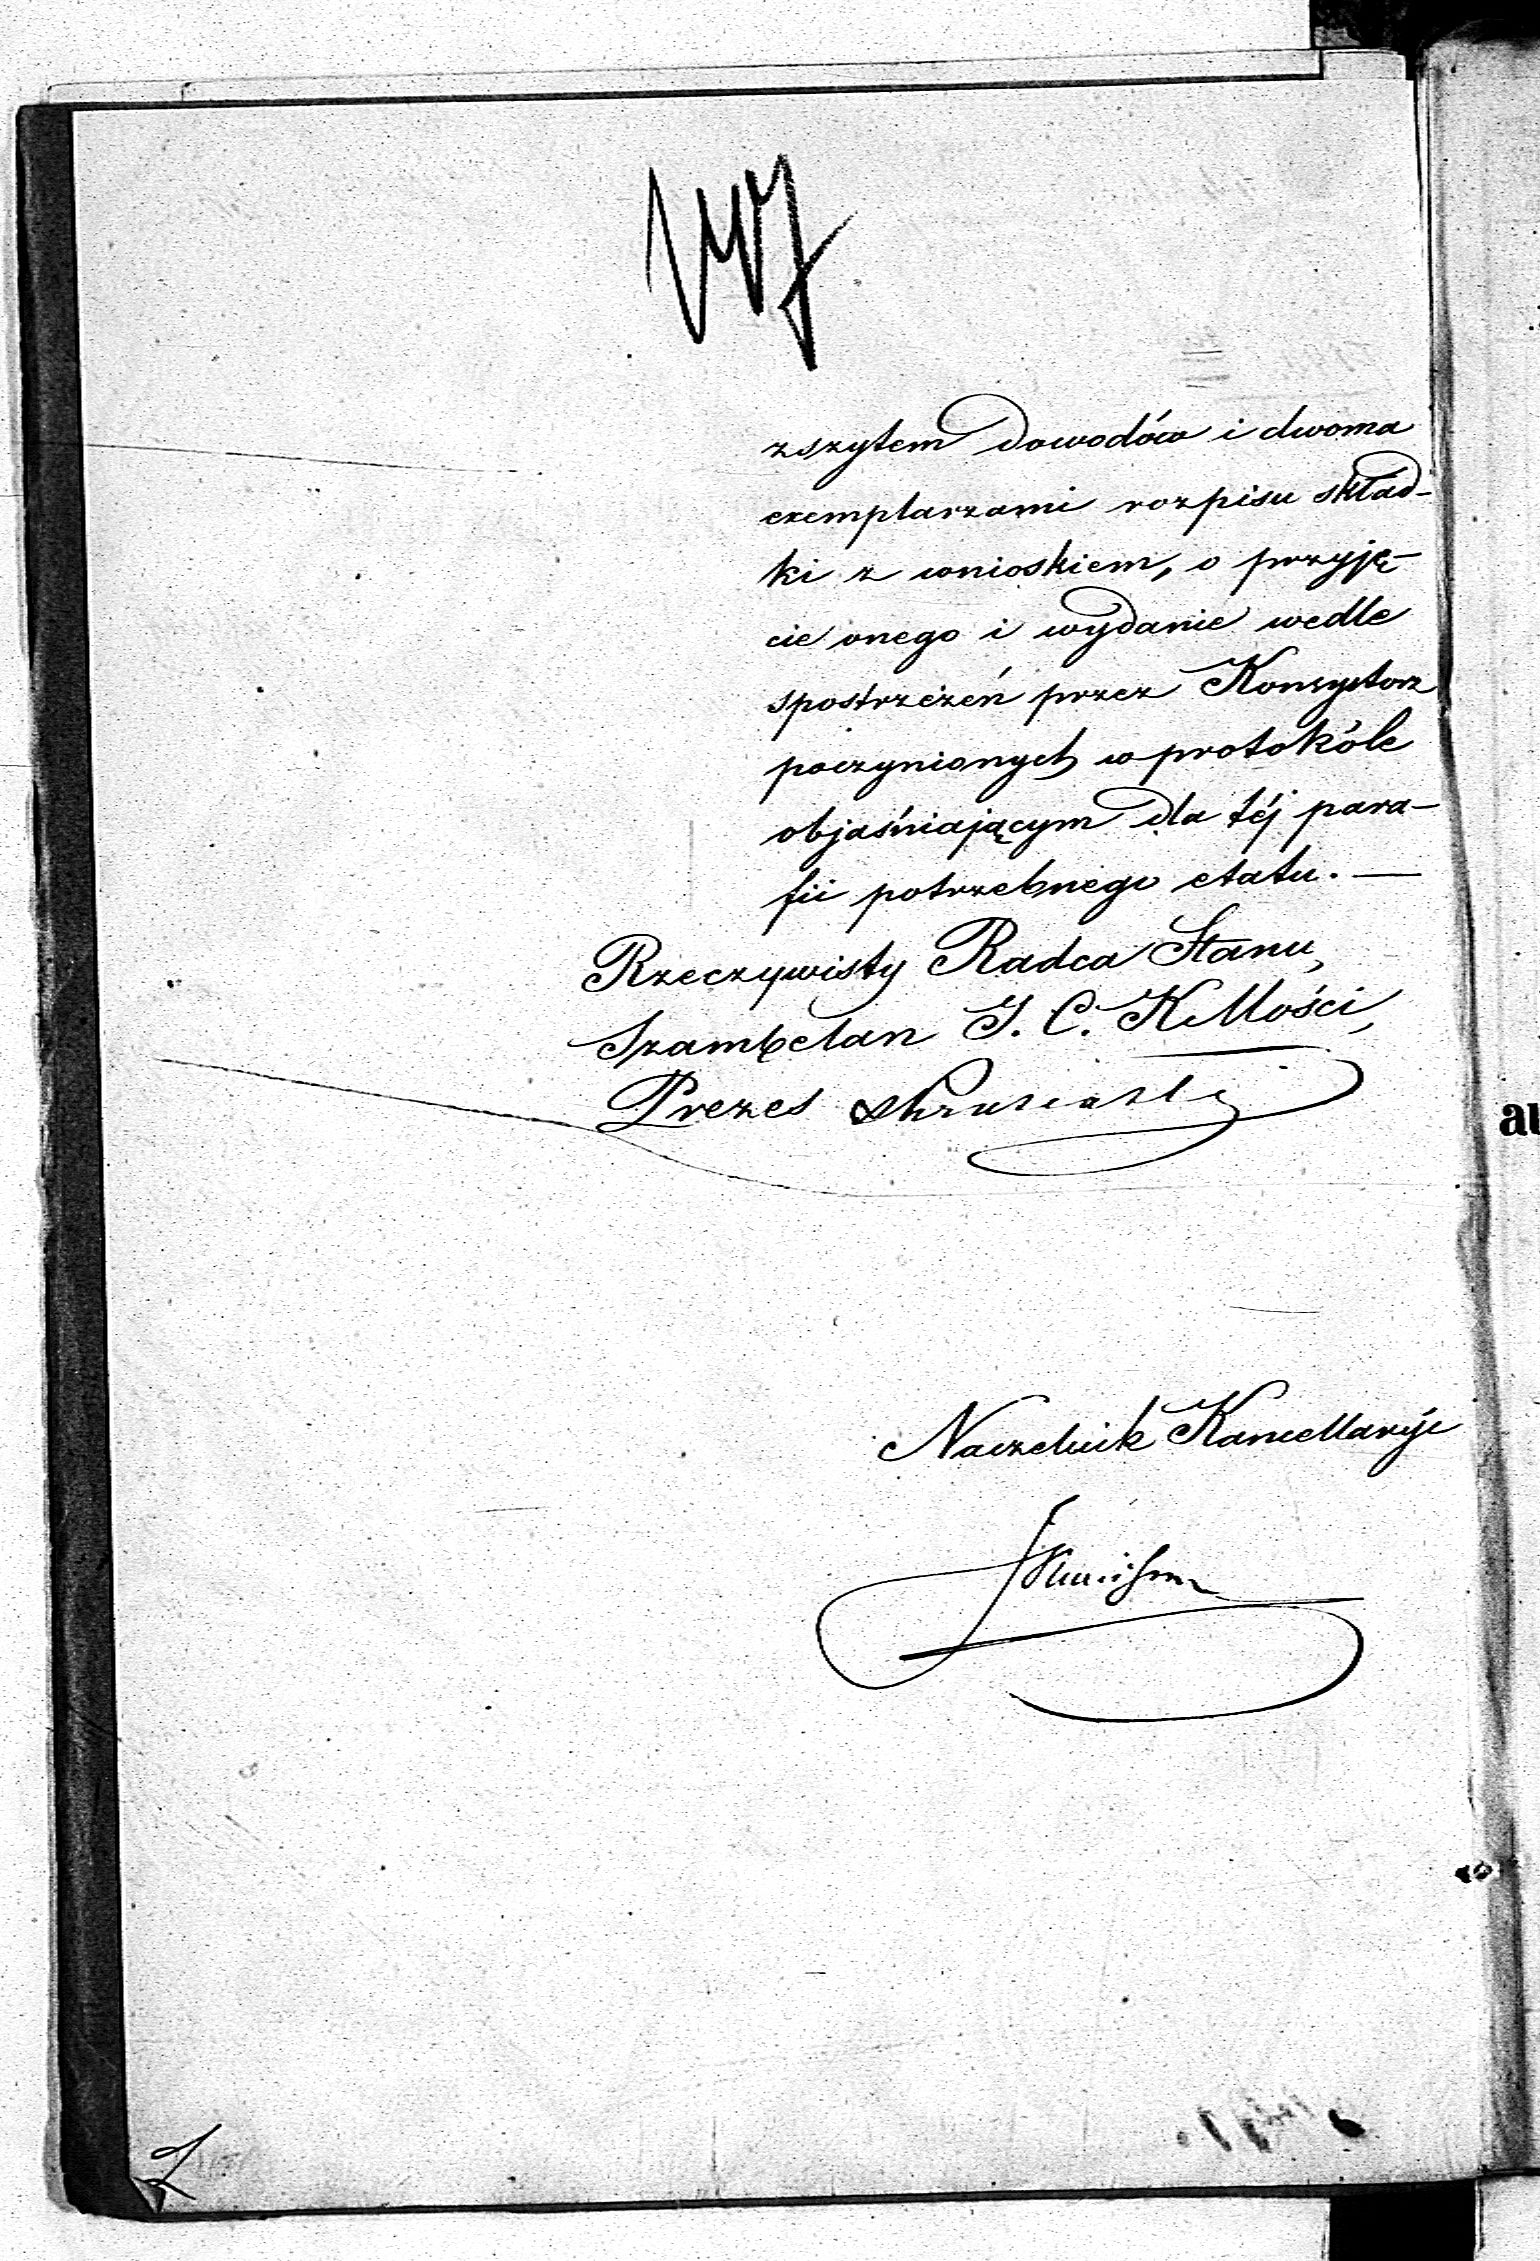 zszytem dowodów i dwoma
exemplarzami rozpisu skład-
ki z wnioskiem, o przyję-
cie onego i wydanie wedle
spostrzeżeń przez Konsystorz
poczynionych w protokóle
objaśniającym dla téj para-
fii potrzebnego etatu. —
Rzeczywisty Radca Stanu,
Szambelan J. C. K. Mości,
Prezes
Naczelnik Kancellaryi